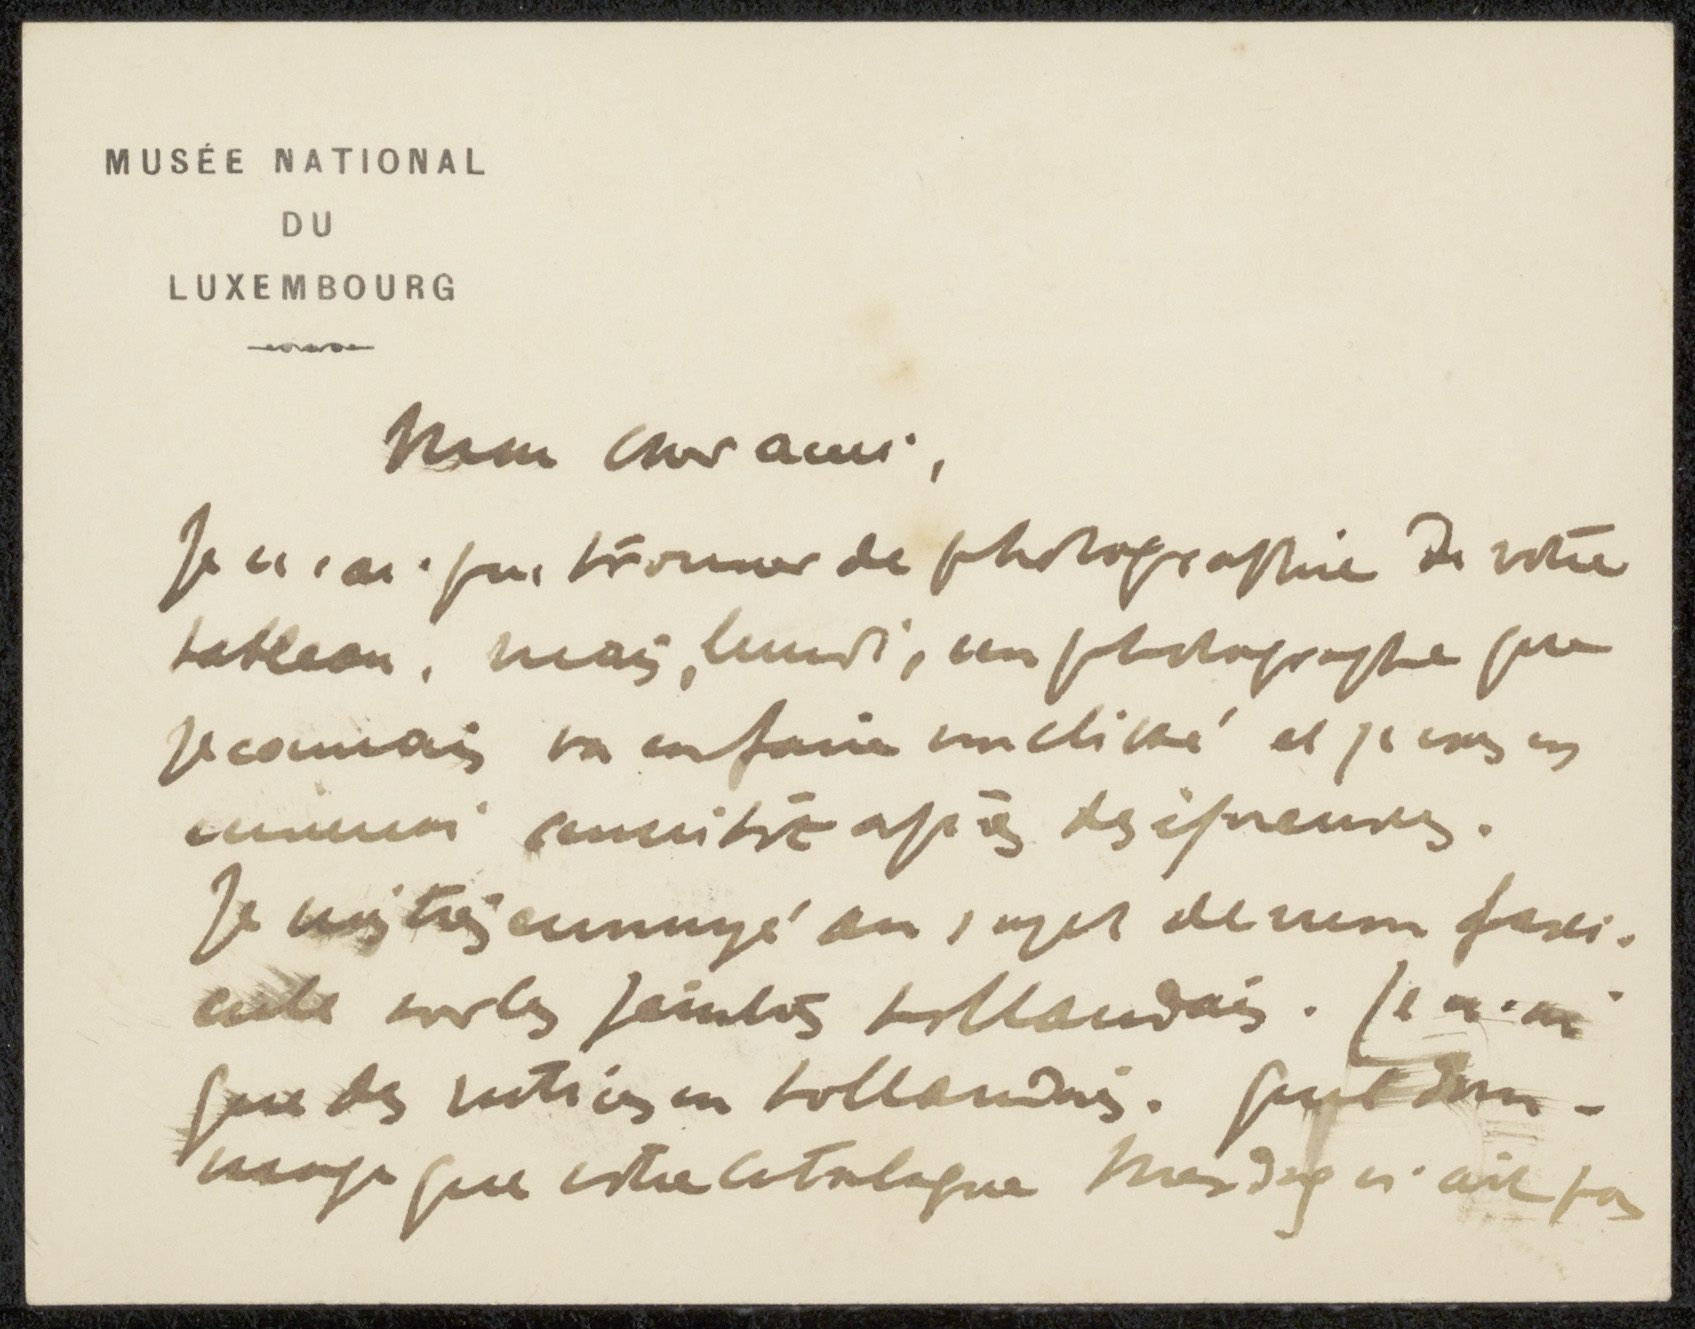 MUSÉE NATIONAL
DU
LUXEMBOURG
Mon cher ami,
Je n'ai pu trouver de photographie de votre
tableau, mais, lundi, un photographe que
je connais va en faire un cliché et je vous en
enverrai aussitôt après des épreuves.
Je suis très ennuyé au sujet de mon fasci-
cule sur les peintres hollandais. Je n'ai
que des notices en hollandais. Quel dom-
mage que votre catalogue Mesdag n'ait pas